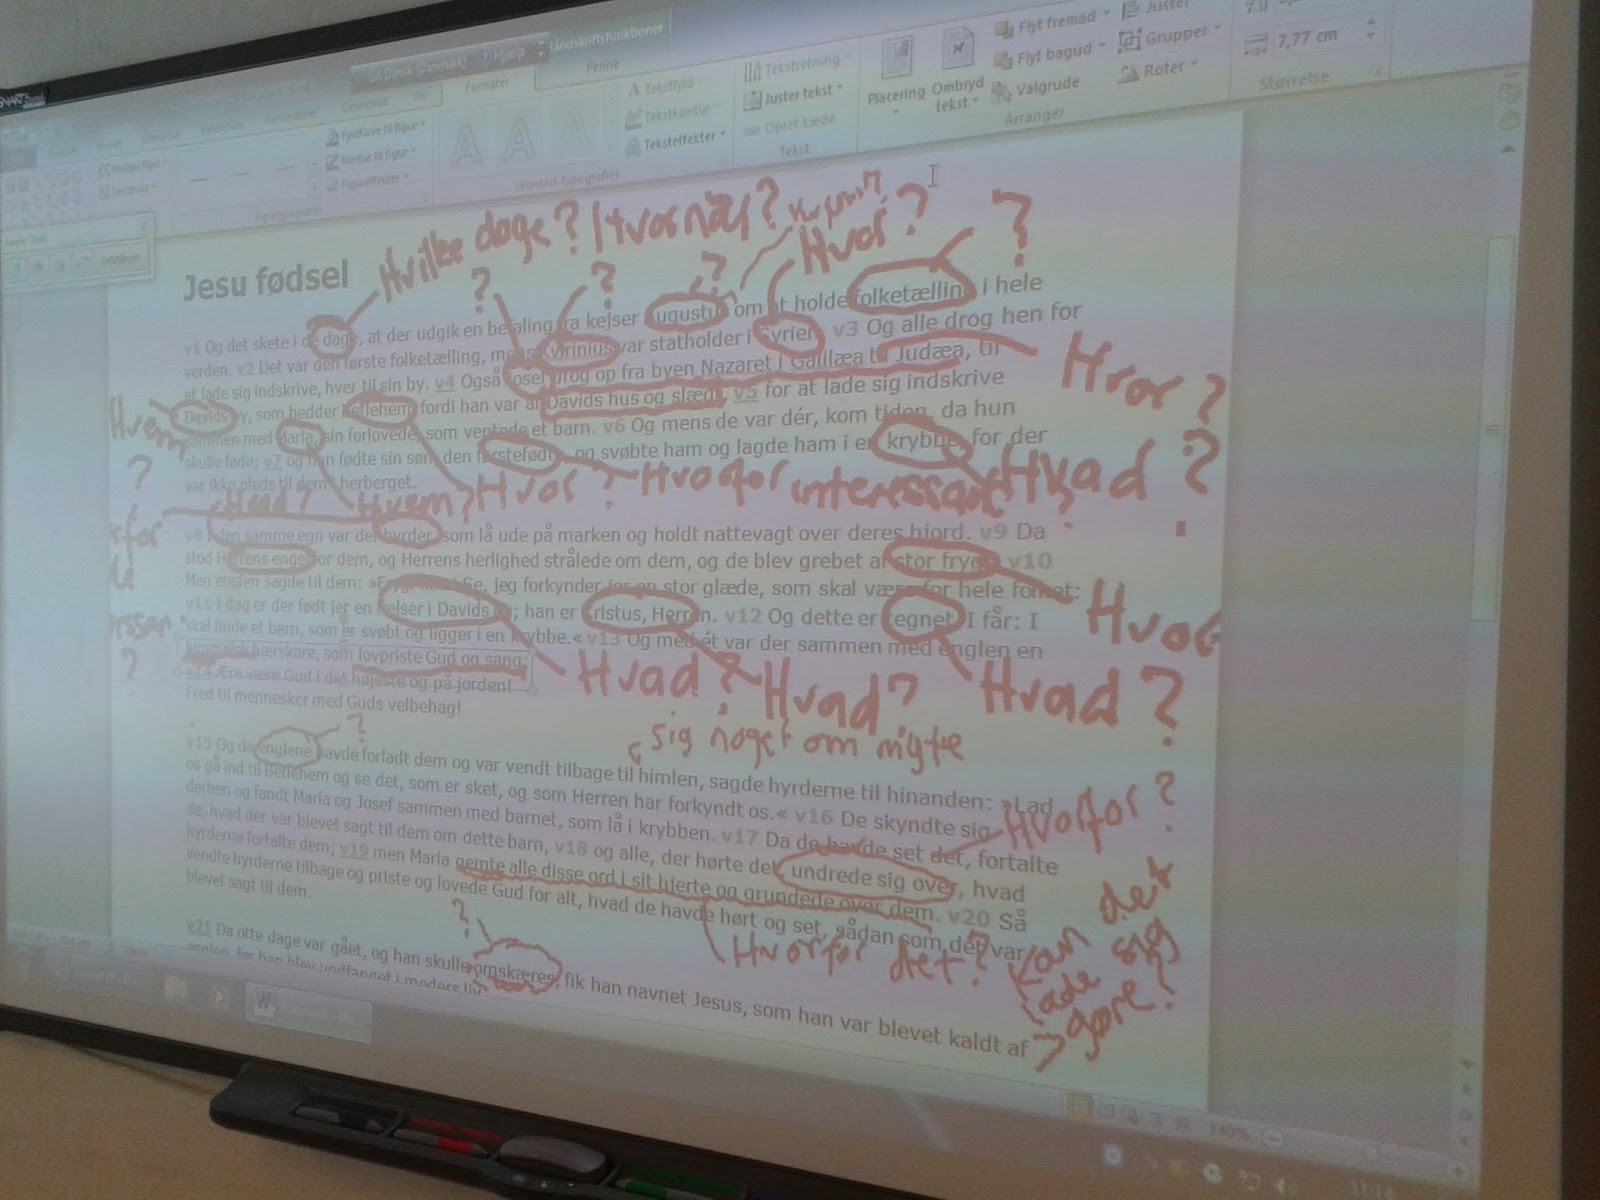 SMART
Dansk (Danmark) Hjælp
Håndskriftsfunktioner
Formater
Penne
Fyldfarve til figur
Kontur til figur
Figureffekter
Tekstfyld
Tekstkontur
Teksteffekter
WordArt-typografier
Tekstretning
Juster tekst
Opret kæde
Tekst
Placering
Ombryd tekst
Flyt fremad
Flyt bagud
Valgrude
Juster
Grupper
Roter
Arranger
7,77 cm
Størrelse
Hvilke dage? Hvornår? Hvem? Hvor? ?
? ? ?
Jesu fødsel
v1 Og det skete i de dage, at der udgik en befaling fra kejser Augustus om at holde folketælling i hele
verden. v2 Det var den første folketælling, mens Kvirinius var statholder i Syrien. v3 Og alle drog hen for
at lade sig indskrive, hver til sin by. v4 Også Josef drog op fra byen Nazaret i Galilæa til Judæa, til
Davids by, som hedder Betlehem, fordi han var af Davids hus og slægt, v5 for at lade sig indskrive
sammen med Maria, sin forlovede, som ventede et barn. v6 Og mens de var dér, kom tiden, da hun
skulle føde; v7 og hun fødte sin søn, den førstefødte, og svøbte ham og lagde ham i en krybbe, for der
var ikke plads til dem i herberget.
Hvor?
Hvem
?
Hvad? Hvem? Hvor? Hvorfor interessant? Hvad?
v8 I den samme egn var der hyrder, som lå ude på marken og holdt nattevagt over deres hjord. v9 Da
stod Herrens engel for dem, og Herrens herlighed strålede om dem, og de blev grebet af stor frygt. v10
Men englen sagde til dem: »Frygt ikke! Se, jeg forkynder jer en stor glæde, som skal være for hele folket:
v11 I dag er der født jer en frelser i Davids by; han er Kristus, Herren. v12 Og dette er tegnet, I får: I
skal finde et barn, som er svøbt og ligger i en krybbe.« v13 Og med ét var der sammen med englen en
himmelsk hærskare, som lovpriste Gud og sang:
v14 Ære være Gud i det højeste og på jorden!
Fred til mennesker med Guds velbehag!
?
Hvad? Hvad? Hvad?
sig noget om migte
?
v15 Og da englene havde forladt dem og var vendt tilbage til himlen, sagde hyrderne til hinanden: »Lad
os gå ind til Betlehem og se det, som er sket, og som Herren har forkyndt os.« v16 De skyndte sig
derhen og fandt Maria og Josef sammen med barnet, som lå i krybben. v17 Da de havde set det, fortalte
de, hvad der var blevet sagt til dem om dette barn, v18 og alle, der hørte det, undrede sig over, hvad
hyrderne fortalte dem; v19 men Maria gemte alle disse ord i sit hjerte og grundede over dem. v20 Så
vendte hyrderne tilbage og priste og lovede Gud for alt, hvad de havde hørt og set, sådan som det var
blevet sagt til dem.
Hvorfor?
?
Hvorfor det?
kan det
lade sig
gøre?
v21 Da otte dage var gået, og han skulle omskæres, fik han navnet Jesus, som han var blevet kaldt af
englen, før han blev undfanget i moders liv.
W
140%